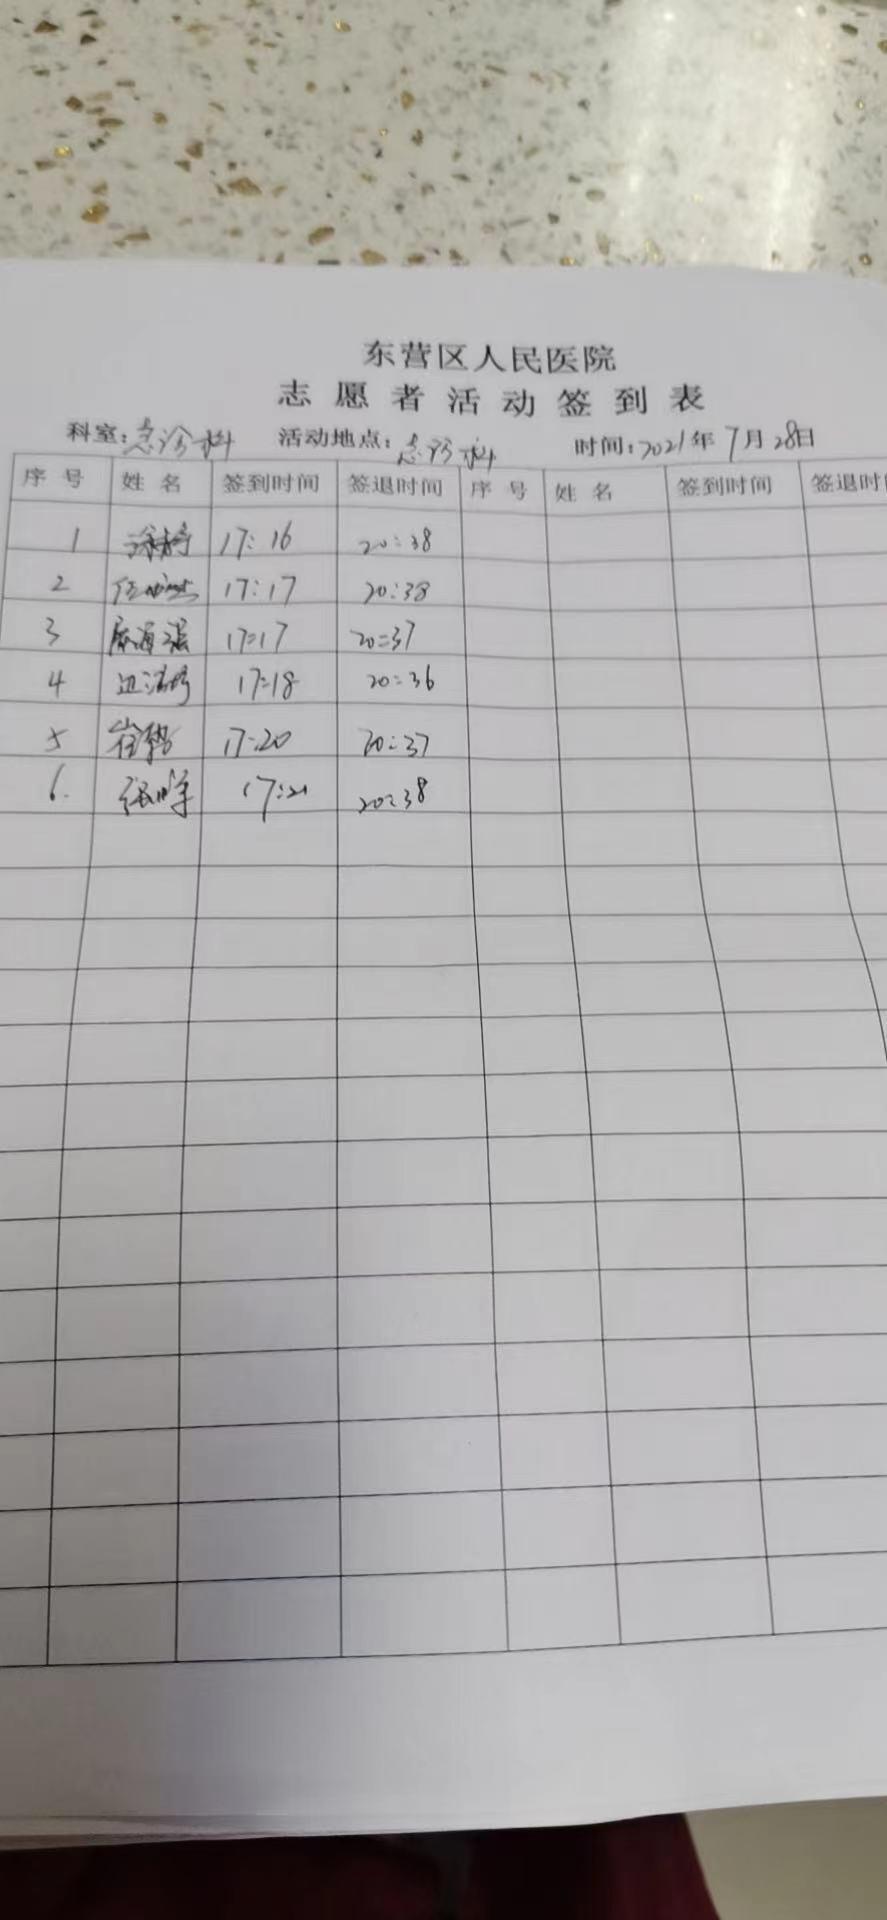 东营区人民医院
志愿者活动签到表
科室:急诊科 活动地点:急诊科 时间:2021年7月28日
序号 姓名 签到时间 签退时间 序号 姓名 签到时间 签退时
1 17:16 20:38
2 17:17 20:38
3 17:17 20:37
4 17:18 20:36
5 17:20 20:37
6. 17:21 20:38